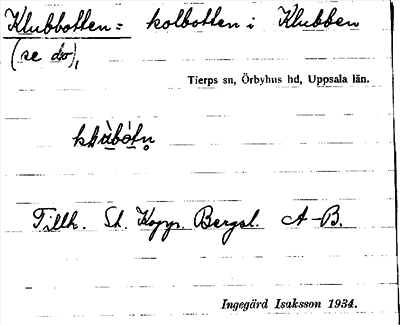 Klubbotten = kolbotten i Klubben
(se do),
Tierps sn, Örbyhus hd, Uppsala län.
Tillh. St. Kopp. Bergsl. A-B.
Ingegärd Isaksson 1934.